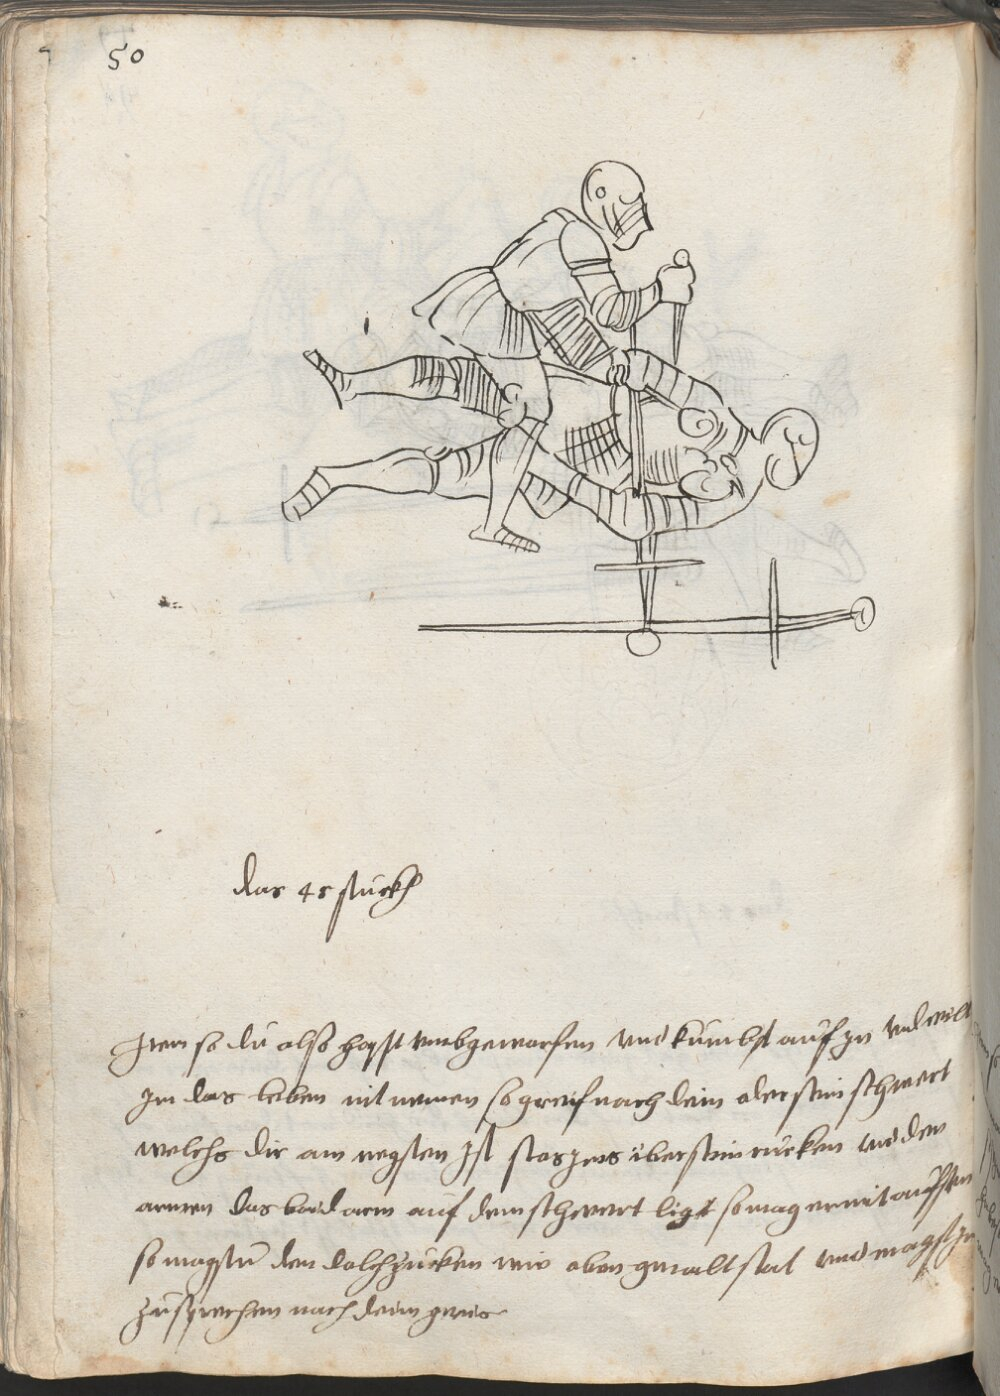 50
das 45 stuckh
Item so du also hast umbgeworfen und kumbst auf in und wilt
im das leben nit nemen so greif nach deim oder seim schwert
welchs dir am negsten ist stos ims über seim rücken und den
armen das baid arm auf dem schwert ligt so mag er nit aufsten
so magstu den dolch zucken wie oben gemalt stat und magst im
zusprechen nach deim